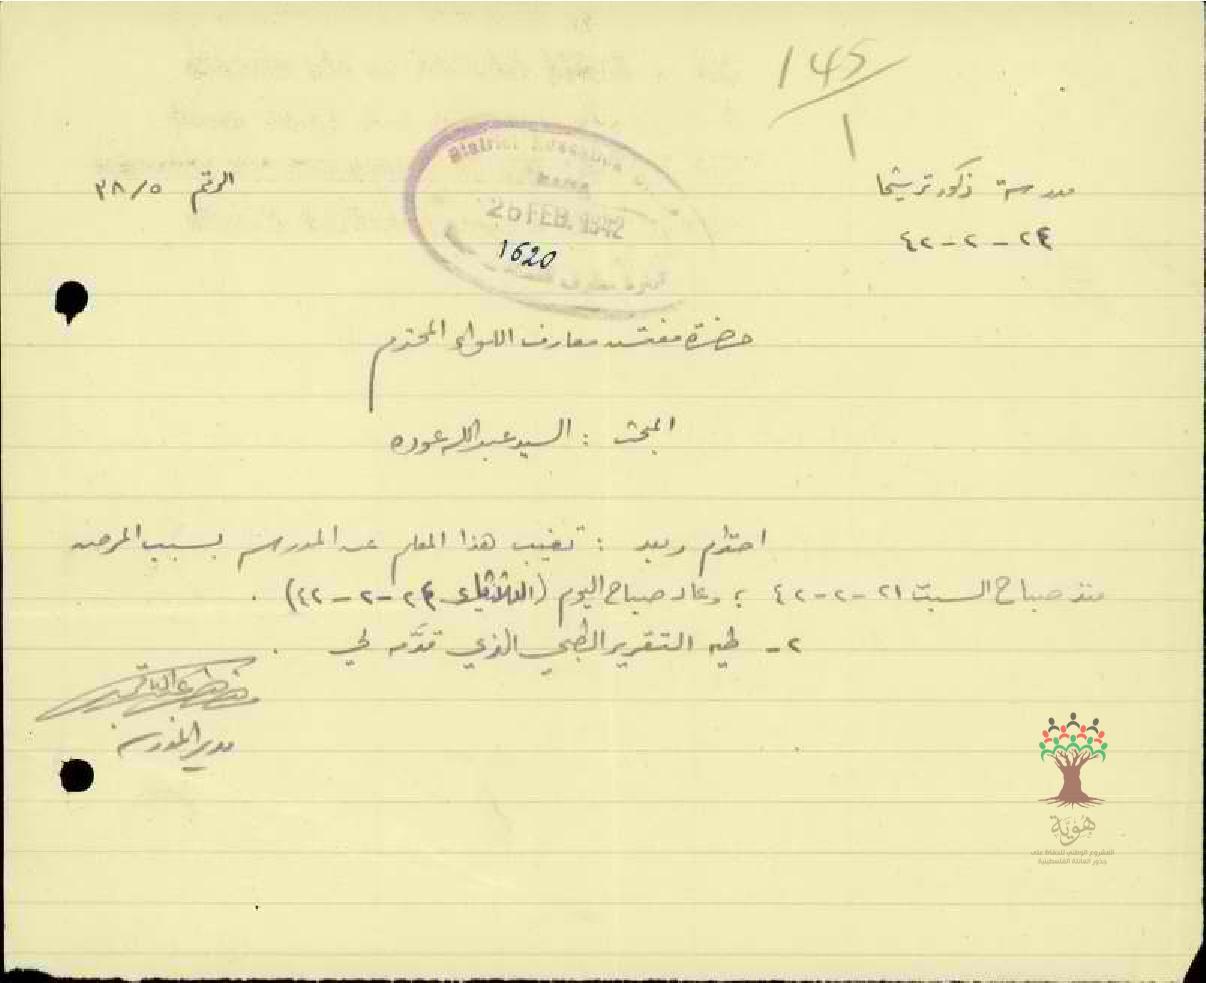 145/1
District Education
26 FEB. 1942
1620
مدرسة ذكور ترشيحا
الرقم ٣٨/٥
٢٤-٢-٤٢
حضرة مفتش معارف اللواء المحترم
المبحث : السيد عبدالله عوده
احترام وبعد : تغيب هذا المعلم عن المدرسة بسبب المرض
منذ صباح السبت ٢١-٢-٤٢ ؛ وعاد صباح اليوم (الثلاثاء ٢٤-٢-٤٢) .
٢- طيه التقرير الطبي الذي قدَّمه لي .
مدير المدرسة
هُوِيَّة
المشروع الوطني للحفاظ على
جذور العائلة الفلسطينية